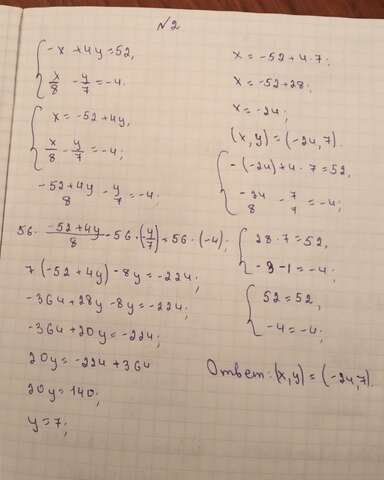 №2
-x + 4y = 52,
x/8 - y/7 = -4.
x = -52 + 4y,
x/8 - y/7 = -4;
-52+4y/8 - y/7 = -4;
56 · -52+4y/8 - 56 · (y/7) = 56 · (-4);
7(-52+4y) - 8y = -224;
-364 + 28y - 8y = -224;
-364 + 20y = -224;
20y = -224 + 364
20y = 140;
y = 7;
x = -52 + 4 · 7;
x = -52 + 28;
x = -24;
(x, y) = (-24, 7).
-(-24) + 4 · 7 = 52,
-24/8 - 7/7 = -4;
28 · 7 = 52,
-3 - 1 = -4;
52 = 52,
-4 = -4;
Ответ: (x, y) = (-24, 7).